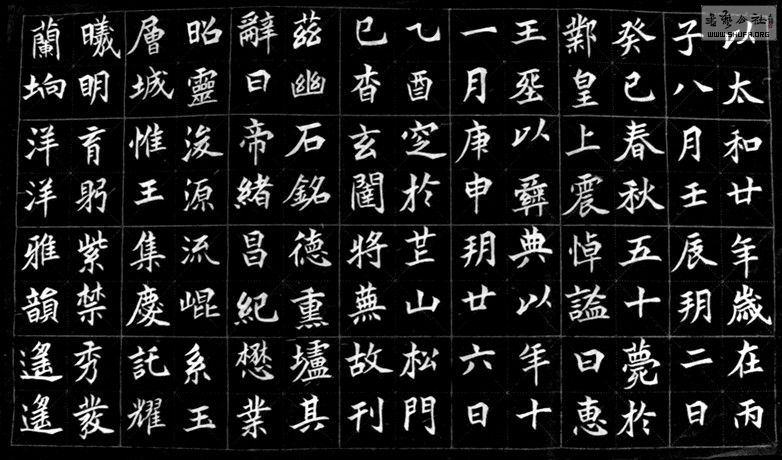 以太和廿年歲在丙
子八月壬辰朔二日
癸巳春秋五十薨於
鄴皇上震悼諡曰惠
王葬以彝典以年十
一月庚申朔廿六日
乙酉窆於芒山松門
已杳玄闥將蕪故刊
茲幽石銘德熏壚其
辭曰帝緒昌紀懋業
昭靈浚源流崐系玉
層城惟王集慶託耀
曦明育躬紫禁秀發
蘭坰洋洋雅韻遙遙
書藝公社
WWW.SHUFA.ORG